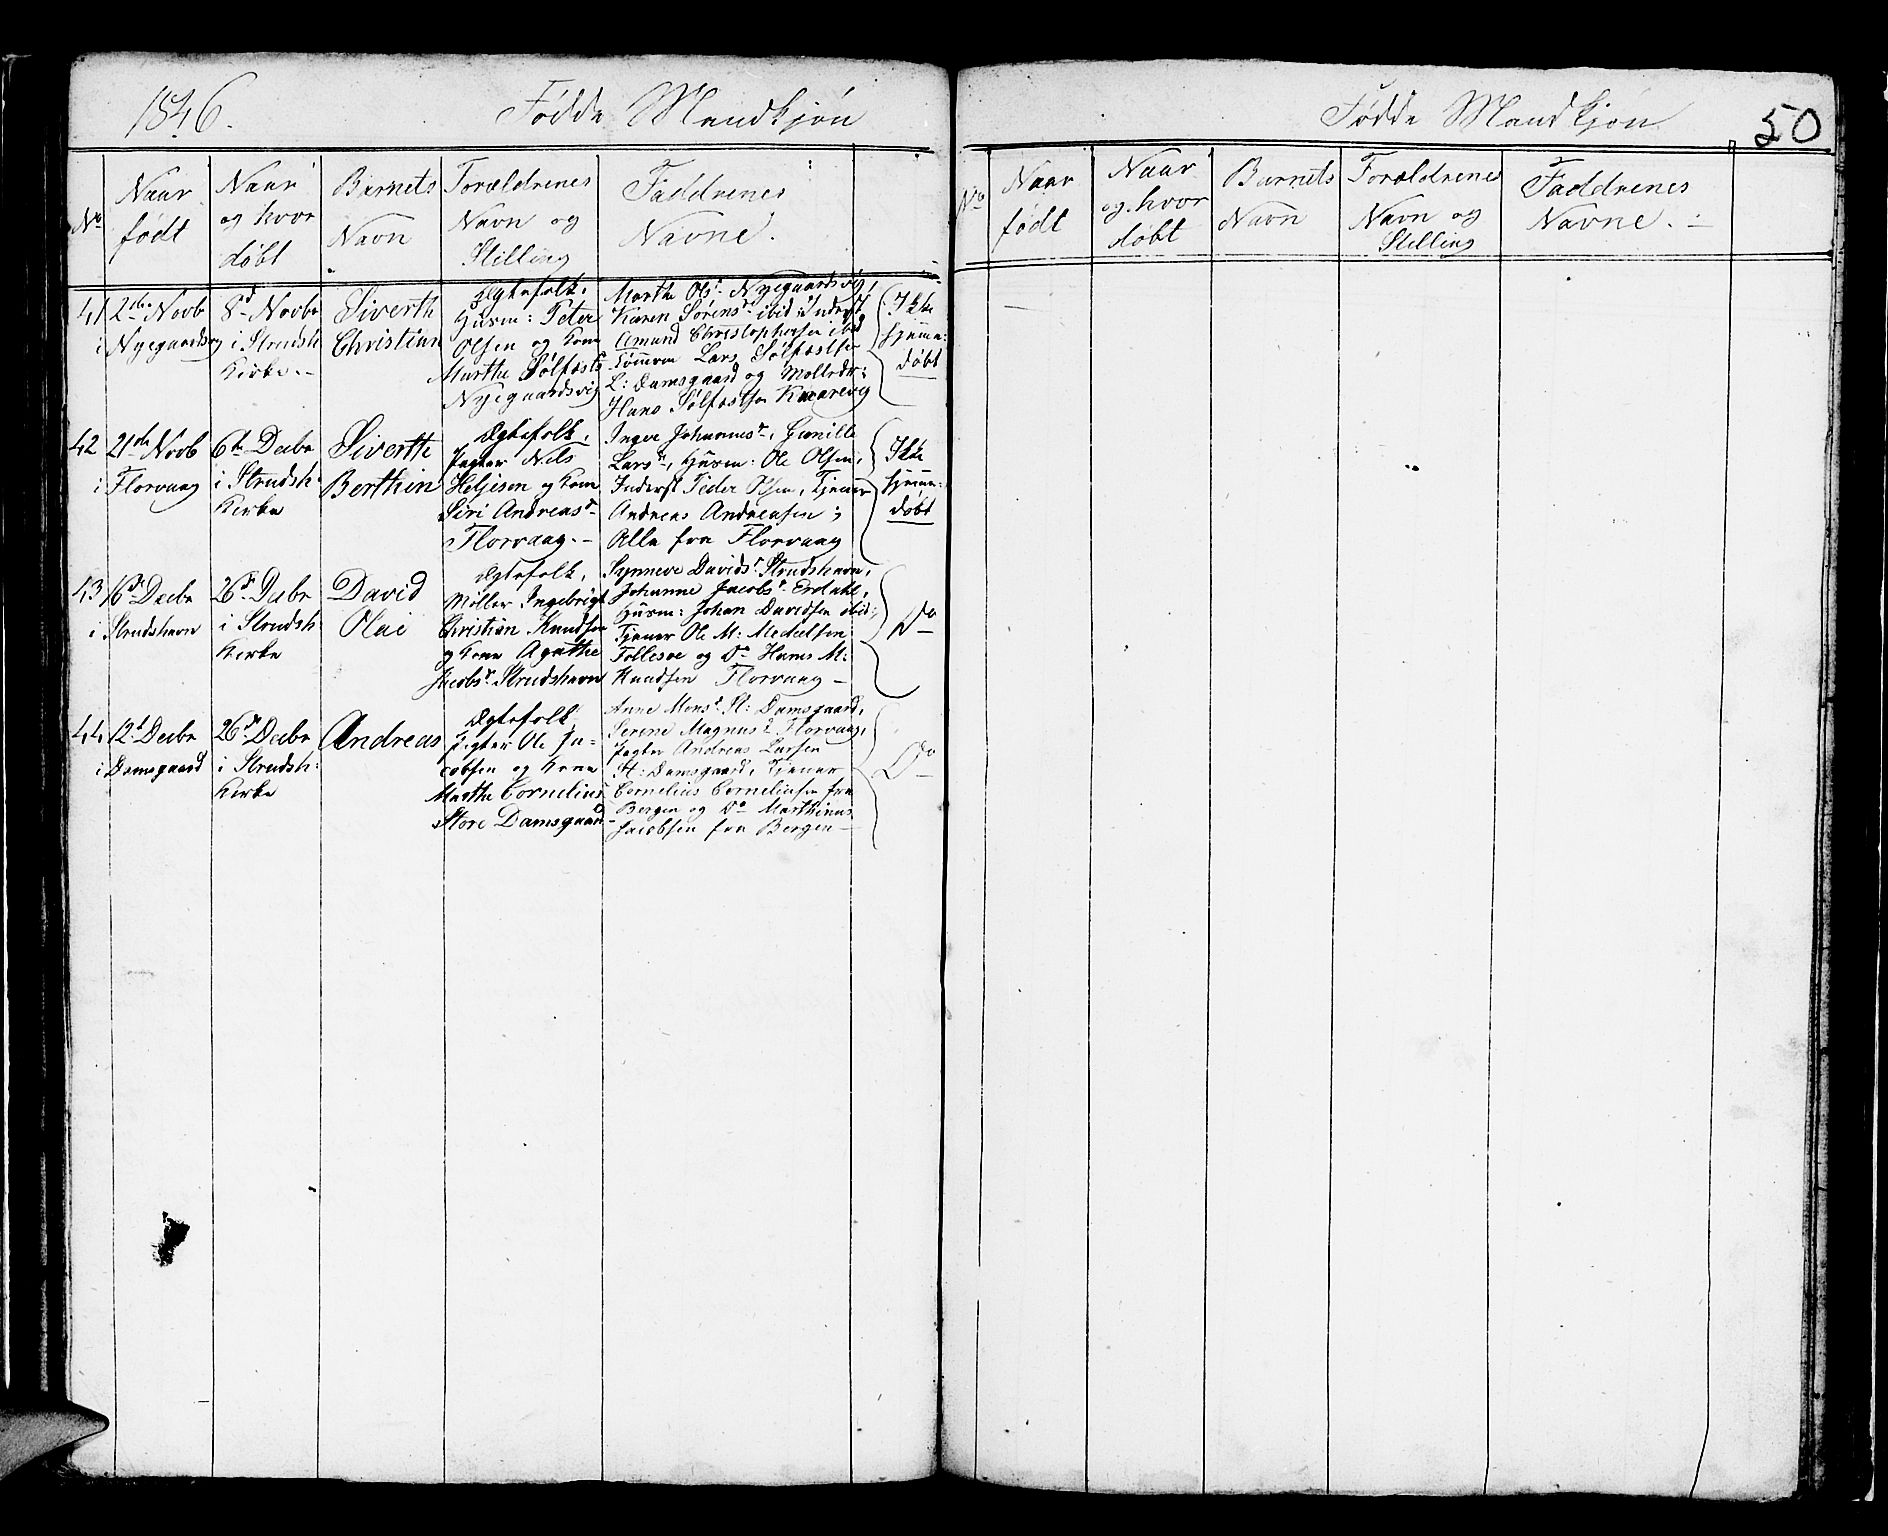 1846.
Fødde Mandkjøn
No
Naar født
Naar og hvor døbt
Barnets Navn
Forældrenes Navn og Stilling
Faddrenes Navne.
41
2de Novb
i Nyegaardsvig
8d Novbr
i Strudsh
Kirke.
Siverth
Christian
Ægtefolk,
Husm: Peter
Olsen og Kone
Marthe Sølfæstd
Nyegaardsvig
Marthe Olsd Nyegaardsvig,
Karen Sørensd ibid: Inderst
Amund Christophersen ibid
Tømrm Lars Sølfæstsen
L: Damsgaard og Mølledr:
Hans Sølfæstsen Kvarevig
Ikke
hjemme:
døbt
42
21de Novb
i Florvaag
6te Decbr
i Strudsh:
Kirke
Siverth
Berthin
Ægtefolk,
Pagter Nils
Heljesen og Kone
Siri Andreasd
Florvaag.
Inger Johannesd, Gunille
Larsd, Husm: Ole Olsen,
Inderst Peder Olsen, Tjener
Andreas Andreasen;
Alle fra Florvaag
Ikke
hjemme:
døbt
43
16de Decbr
i Strudshavn
26de Decbr
i Strudsh:
Kirke
David
Olai
Ægtefolk,
Møller Ingebrigt
Christian Knudsen
og Kone Agathe
Jacobsd Strudshavn
Synneve Davidsd Strudshavn,
Johanne Jacobsd Erdahl,
Husm: Johan Davidsen ibid:,
Tjener Ole M: Mikkelsen
Follesøe og Do Hans M:
Knudsen Florvaag
Do
44
12te Decbr
i Damsgaard
26de Decbr
i Strudsh:
Kirke
Andreas
Ægtefolk,
Pagter Ole Ja=
cobsen og Kone
Marthe Corneliusd
Store Damsgaard
Anne Monsd St: Damsgaard,
Serine Magnusd Florvaag,
Pagter Andreas Larsen
St: Damsgaard, Tjener
Cornelius Corneliusen fra
Bergen og Do Marthinus
Jacobsen fra Bergen
Do
Fødde Mandkjøn
50
No
Naar født
Naar og hvor døbt
Barnets Navn
Forældrenes Navn og Stilling
Faddrenes Navne.